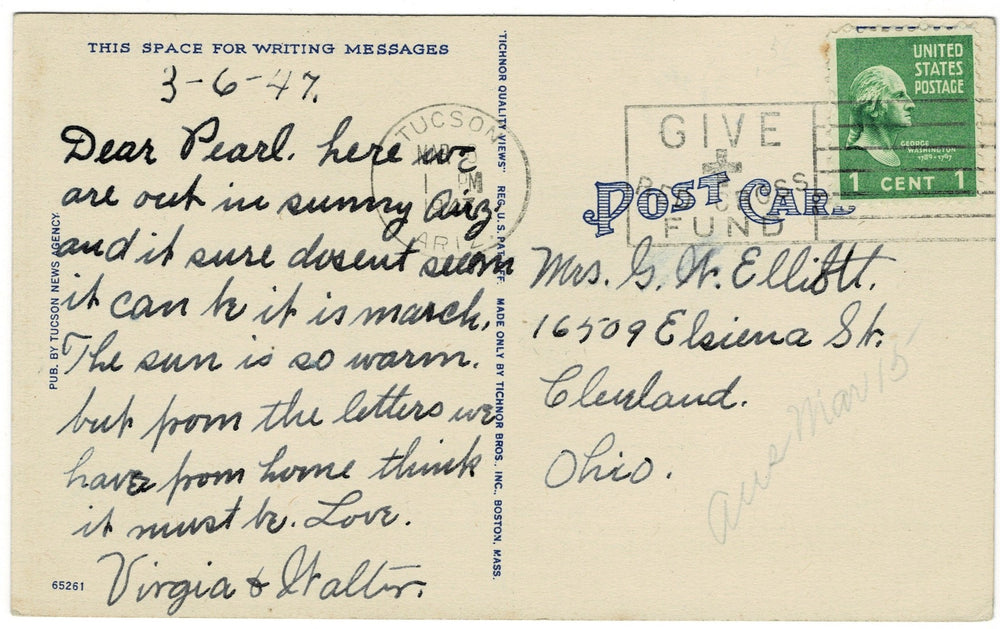 THIS SPACE FOR WRITING MESSAGES
3-6-47.
Dear Pearl. here we
are out in sunny Airz
and it sure dosent seem
it can be it is march.
The sun is so warm.
but from the letters we
have from home think
it must be. Love.
Virgia & Walter.
65261
PUB. BY TUCSON NEWS AGENCY
"TICHNOR QUALITY VIEWS" REG. U.S. PAT. OFF. MADE ONLY BY TICHNOR BROS., INC., BOSTON, MASS.
TUCSON
MAR
1 PM
1947
ARIZ.
GIVE
RED CROSS
FUND
POST CARD
UNITED
STATES
POSTAGE
GEORGE
WASHINGTON
1789-1797
1 CENT 1
Mrs. G. W. Elliott.
16509 Elsiena St.
Clevland.
Ohio.
Mar 15